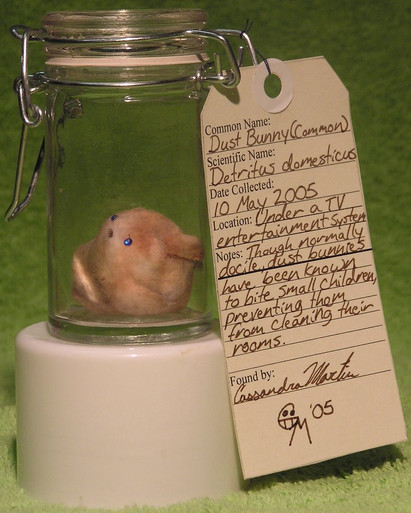 Common Name:
Dust Bunny (Common)
Scientific Name:
Detritus domesticus
Date Collected:
10 May 2005
Location: Under a TV
entertainment system
Notes: Though normally
docile, dust bunnies
have been known
to bite small children,
preventing them
from cleaning their
rooms.
Found by:
Cassandra Martin
'05